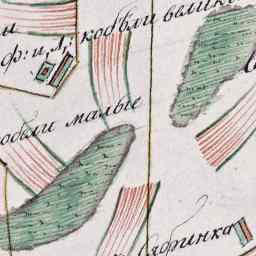 и
ф: и, л: кобыли велик
обыли малые
Рябинка